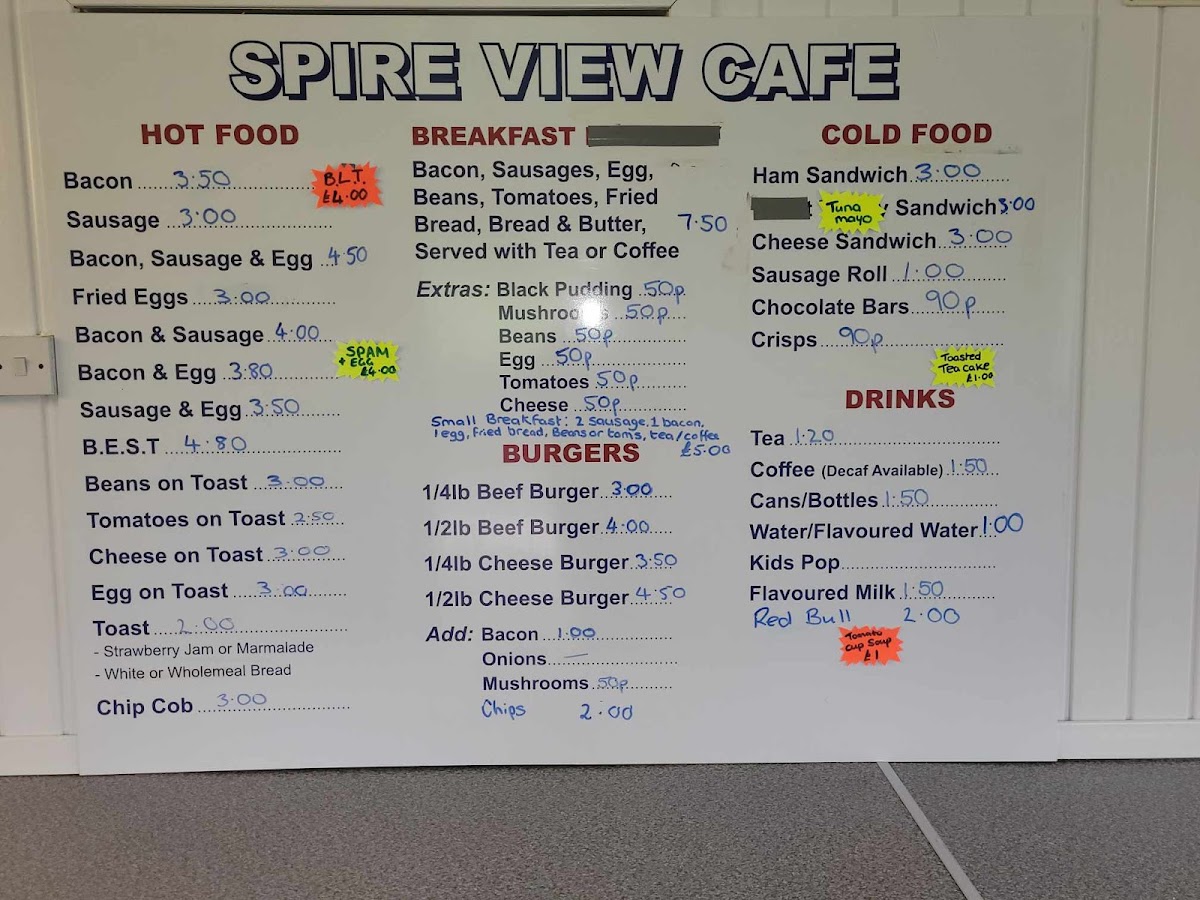 SPIRE VIEW CAFE
HOT FOOD
Bacon 3.50
B.L.T.
£4.00
Sausage 3.00
Bacon, Sausage & Egg 4.50
Fried Eggs 3.00
Bacon & Sausage 4.00
Bacon & Egg 3.80
SPAM
+ EGG
£4.00
Sausage & Egg 3.50
B.E.S.T 4.80
Beans on Toast 3.00
Tomatoes on Toast 2.50
Cheese on Toast 3.00
Egg on Toast 3.00
Toast 2.00
- Strawberry Jam or Marmalade
- White or Wholemeal Bread
Chip Cob 3.00
BREAKFAST
Bacon, Sausages, Egg,
Beans, Tomatoes, Fried
Bread, Bread & Butter, 7.50
Served with Tea or Coffee
Extras: Black Pudding 50p
Mushrooms 50p
Beans 50p
Egg 50p
Tomatoes 50p
Cheese 50p
Small Breakfast: 2 sausage, 1 bacon,
1 egg, fried bread, Beans or toms, tea/coffee
£5.00
BURGERS
1/4lb Beef Burger 3.00
1/2lb Beef Burger 4.00
1/4lb Cheese Burger 3.50
1/2lb Cheese Burger 4.50
Add: Bacon 1.00
Onions —
Mushrooms 50p
Chips 2.00
COLD FOOD
Ham Sandwich 3.00
Tuna
mayo
Sandwich 3.00
Cheese Sandwich 3.00
Sausage Roll 1.00
Chocolate Bars 90p
Crisps 90p
Toasted
Tea cake
£1.00
DRINKS
Tea 1.20
Coffee (Decaf Available) 1.50
Cans/Bottles 1.50
Water/Flavoured Water 1.00
Kids Pop
Flavoured Milk 1.50
Red Bull 2.00
Tomato
cup soup
£1